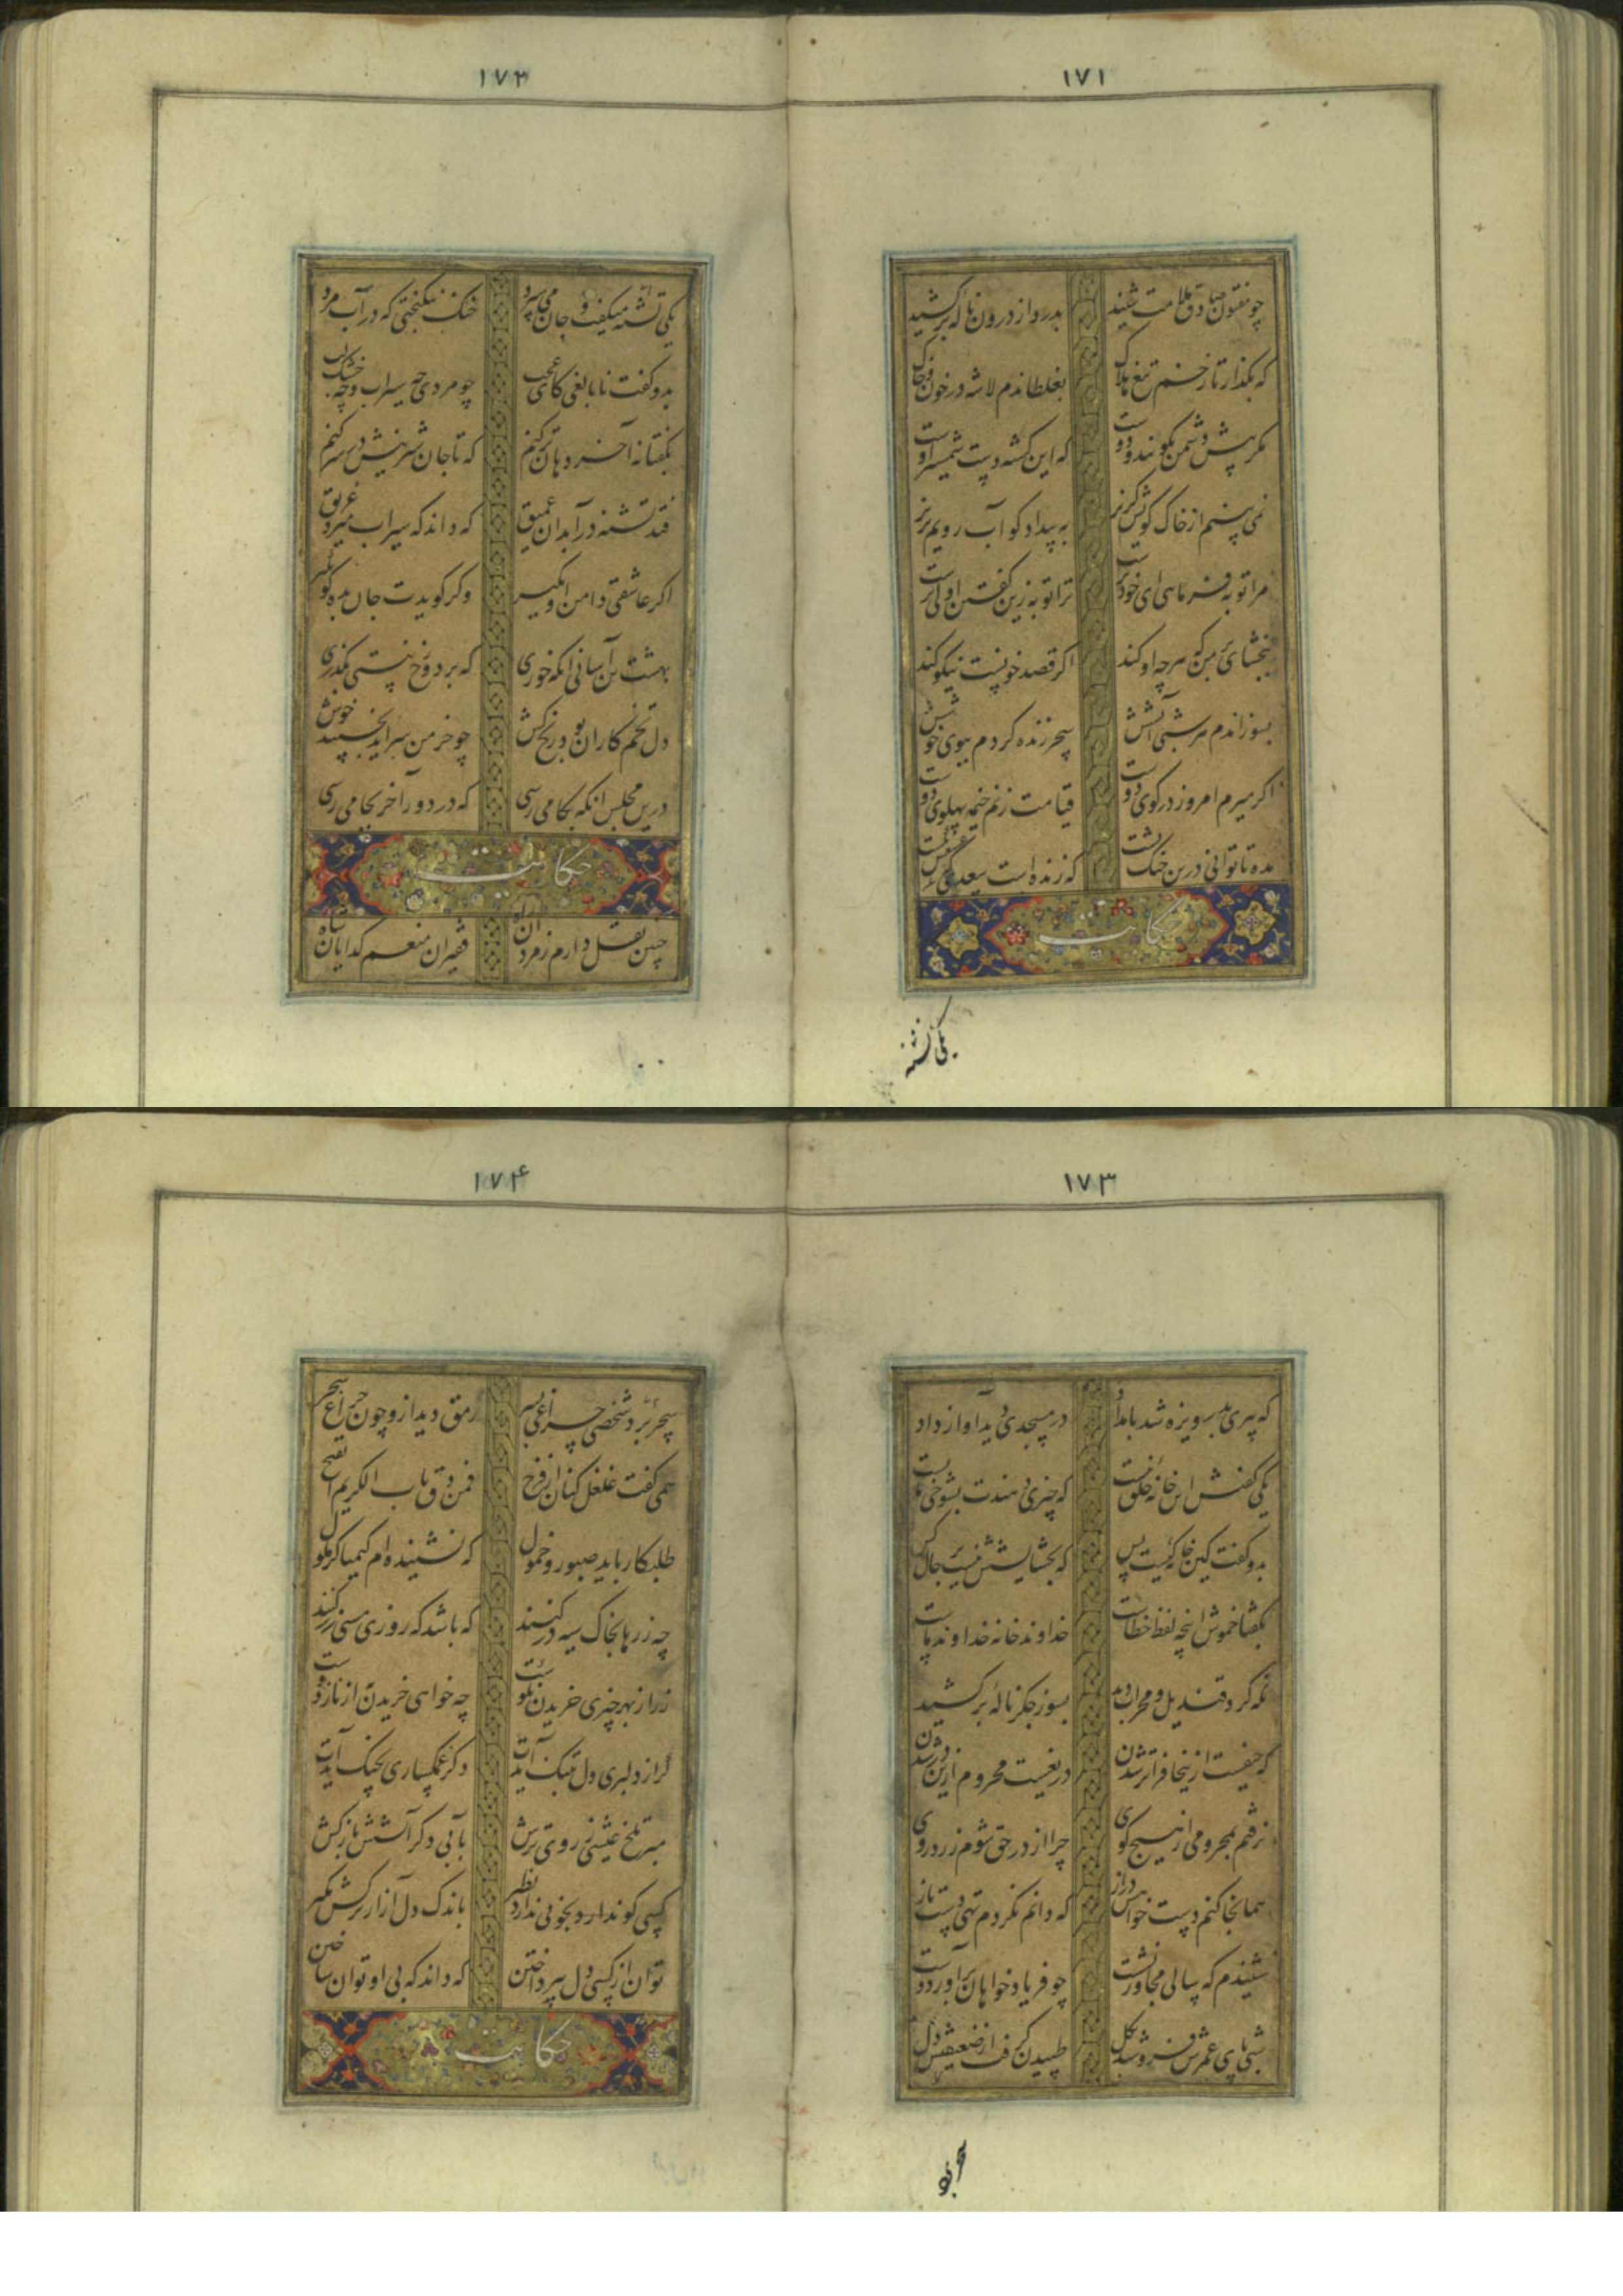 ۱۷۱
چو مفتون صادق ملامت شنید بدرد از درون نالهٔ برکشید
که بگذار تا زخم تیغ هلاک بغلطاندم لاشه در خون و خاک
مگر پیش دشمن بگویند و دوست که این کشته دست شمشیر اوست
نمی بینم از خاک کویش گریز به بیداد گو آب رویم بریز
مرا توبه فرمائی ای خودپرست ترا توبه زین گفتن اولی ترست
ببخشای بر من که هرچه او کند اگر قصد خونست نیکو کند
بسوزاندم هر شبی آتشش سحر زنده گردم ببوی خوشش
اگر میرم امروز در کوی دوست قیامت زنم خیمه پهلوی دوست
مده تا توانی درین جنگ پشت که زنده است سعدی که عشقش بکشت
حکایت
یکی تشنه
۱۷۲
یکی تشنه میگفت و جان می سپرد خنک نیکبختی که در آب مرد
بدو گفت نابالغی کای عجب چو مردی چه سیراب و چه خشک لب
بگفتا نه آخر دهان تر کنم که تا جان شیرینش در سر کنم
فتد تشنه در آبدان عمیق که داند که سیراب میرد غریق
اگر عاشقی دامن او بگیر وگر گویدت جان بده گو بگیر
بهشت تن آسانی آنگه خوری که بر دوزخ نیستی بگذری
دل تخم کاران بود رنج کش چو خرمن برآید بخسبند خوش
درین مجلس آنکه بکامی رسی که در دور آخر بجامی رسی
حکایت
چنین نقل دارم ز مردان راه فقیران منعم گدایان شاه
۱۷۳
که پیری بدریوزه شد بامداد در مسجدی دید آواز داد
یکی گفتش این خانه خلق نیست که چیزی دهندت بشوخی مایست
بدو گفت کین خانه کیست پس که بخشایشش نیست بر حال کس
بگفتا خموش اینچه لفظ خطاست خداوند خانه خداوند ماست
نگه کرد قندیل و محراب دید بسوز جگر نالهٔ برکشید
که حیفست ازینجا فراتر شدن دریغست محروم ازین در شدن
نرفتم بمحرومی از هیچ کوی چرا از در حق شوم زرد روی
هم اینجا کنم دست خواهش دراز که دانم نگردم تهی دست باز
شنیدم که سالی مجاور نشست چو فریاد خواهان برآورد دست
شبی پای عمرش فرو شد بگل طپیدن گرفت از ضعیفیش دل
سحر برد
۱۷۴
سحر برد شخصی چراغی بسر رمق دید ازو چون چراغ سحر
همی گفت غلغل کنان از فرح فمن دق باب الکریم انفتح
طلبکار باید صبور و حمول که نشنیده ام کیمیاگر ملول
چه زرها بخاک سیه در کنند که باشد که روزی مسی زر کنند
زر از بهر چیزی خریدن نکوست چه خواهی خریدن از ناز دوست
گر از دلبری دل بتنگ آیدت دگر غمگساری بچنگ آیدت
مبر تلخ عیشی ز روی ترش بآبی دگر آتشش بازکش
کسی کو ندارد بخوبی نظیر باندک دل آزار ترکش مگیر
توان از کسی دل بپرداختن که داند که بی او توان ساختن
حکایت